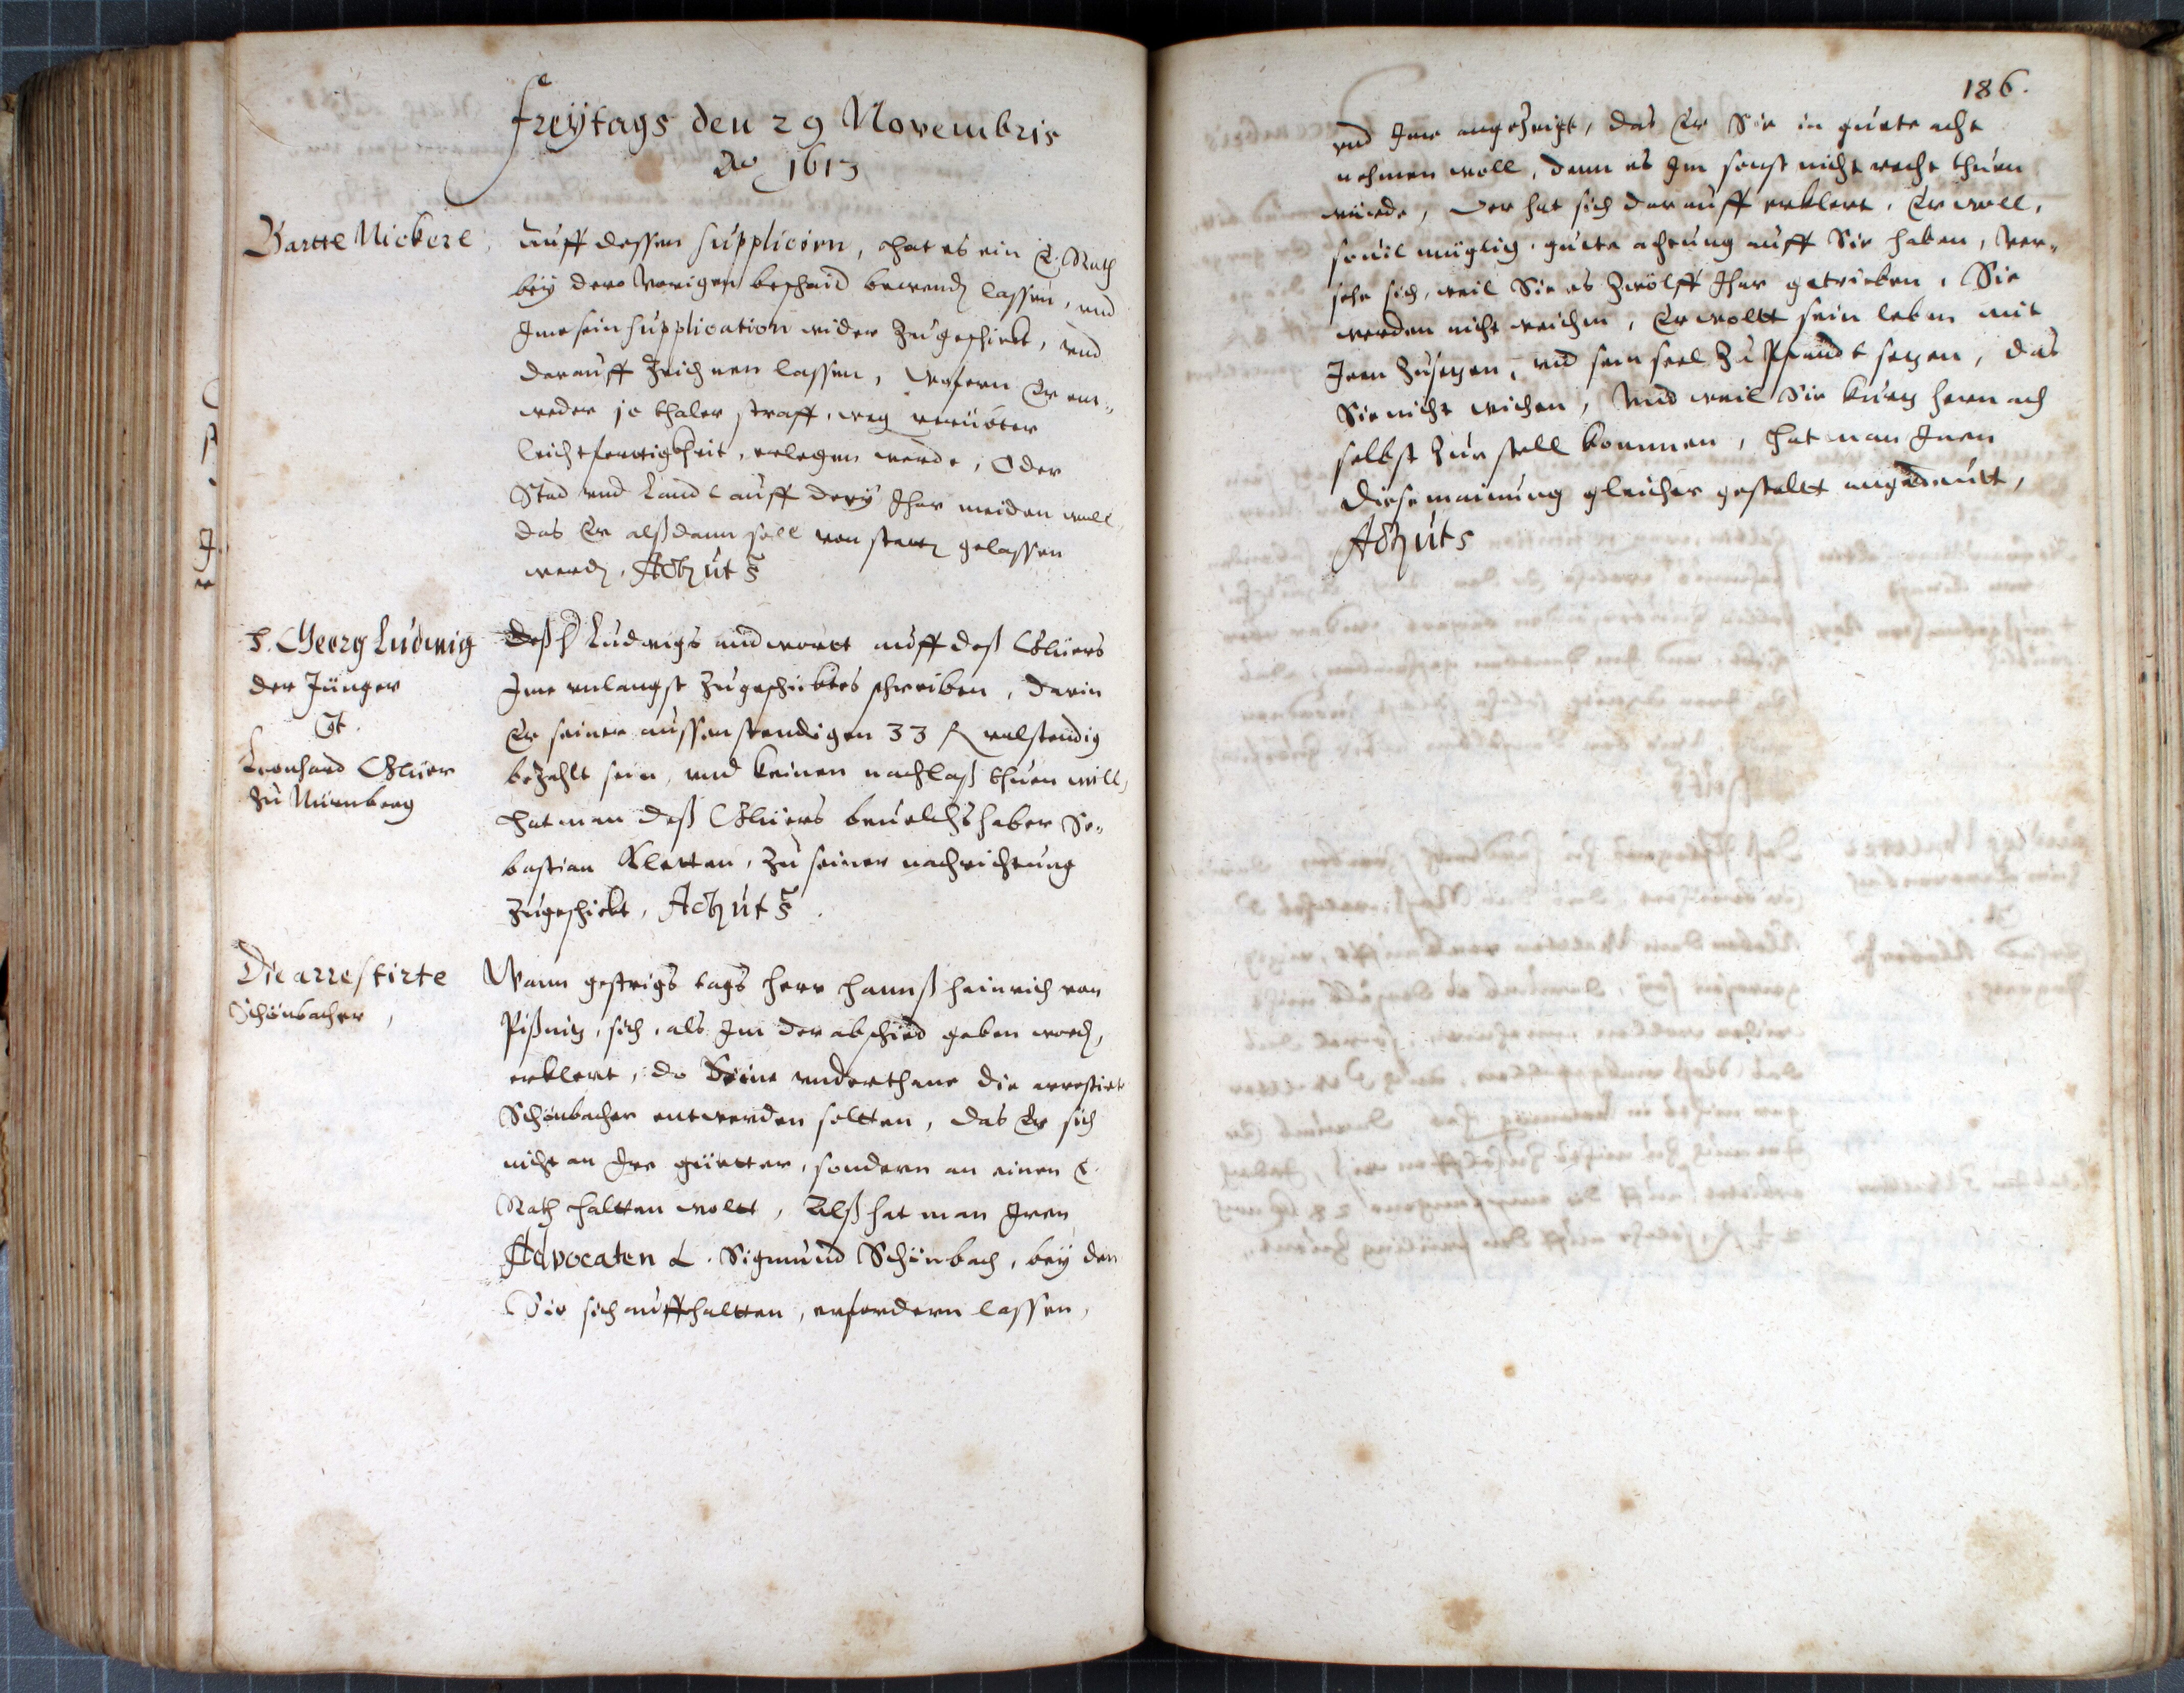 Freÿtags den 29 Novembris
Aõ 1613
Bartle Nickerl,
Auff dessen suppliciern, hat es ein E. Rath
beÿ dero Vorigen beschaid bewenden lassen, vnd
Jme sein supplication wider Zugeschickt, vnd
darauff Zeichnen lassen, Wofern Er ent„
weder 50 thaler straff, weg verübter
leichtfertigkheit, erlegen werde, Oder
Stad vnd Landt auff dreÿ Jhar meiden woll,
das Er alßdann soll von statt gelassen
werden. Act. ut s.
H. Georg Ludwig
der Jünger
Ct.
Leonhard
Zu Nürmberg
Deß H Ludwigs andwortt auff deß
Jme vnlangst Zugeschicktes schreiben, darin
Er seiner aussenstendigen 33 f volstendig
bezahlt sein, vnd keinen nachlaß thuen will,
hat man deß beuelchshaber Se„
bastian Kletten, Zu seiner nachrichtung
Zugeschickt, Act. ut s.
Die arrestirte
Schönbacher,
Wann gestrigs tags herr hannß heinrich von
Pißnitz, sich, als Jm der abschied geben word,
erklert, do Seine vnderthane die arrestirte
Schönbacher entwerden soltten, das Er sich
nicht an Jre güetter, sondern an einen E.
Rath haltten woltt, Alß hat man Jren
Advocaten L. Sigmund Schönbach, beÿ dem
Sie sich auffhaltten, erfordern lassen,
186.
vnd Jme angeZeigt, das Er Sie in guete acht
nehmen woll, dann es Jm sonst nicht recht thuen
würde, Der hat sich darauff erklert, Er woll,
souil müglig, guete achtung auff Sie haben, Ver„
sehe sich, weil Sie es Zwölff Jhar getrieben, Sie
werden nicht weichen, Er woltt sein leben mit
Jren Zusetzen, vnd sein seel Zu Pfandt setzen, das
Sie nicht wichen, Vnd weil Sie kurtz hernach
selbst Zur stell kommen, hat man Jnen
diese mainung gleicher gestaltt angedeutt,
Act. ut s